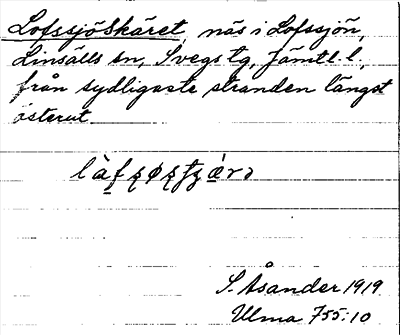 Lofssjöskäret, näs i Lofssjön,
Linsälls sn, Svegs tg, Jämtl. l.,
från sydligaste stranden längst
österut
S. Åsander 1919
Ulma 755:10